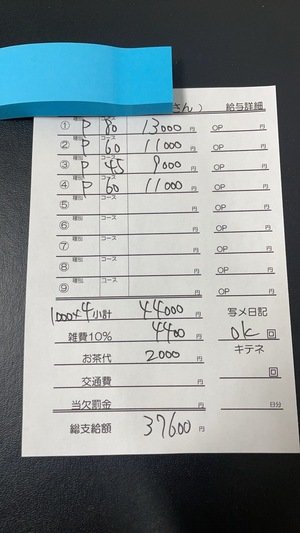 さん） 給与詳細
① 種別 P コース 80 13000 円 OP 円
② 種別 P コース 60 11000 円 OP 円
③ 種別 P コース 45 9000 円 OP 円
④ 種別 P コース 60 11000 円 OP 円
⑤ 種別 コース 円 OP 円
⑥ 種別 コース 円 OP 円
⑦ 種別 コース 円 OP 円
⑧ 種別 コース 円 OP 円
⑨ 種別 コース 円 OP 円
1000×4 小計 44000 円 写メ日記
雑費10% 4400 円 OK 回
お茶代 2000 円 キテネ
交通費 円 回
当欠罰金 円 日分
総支給額 37600 円